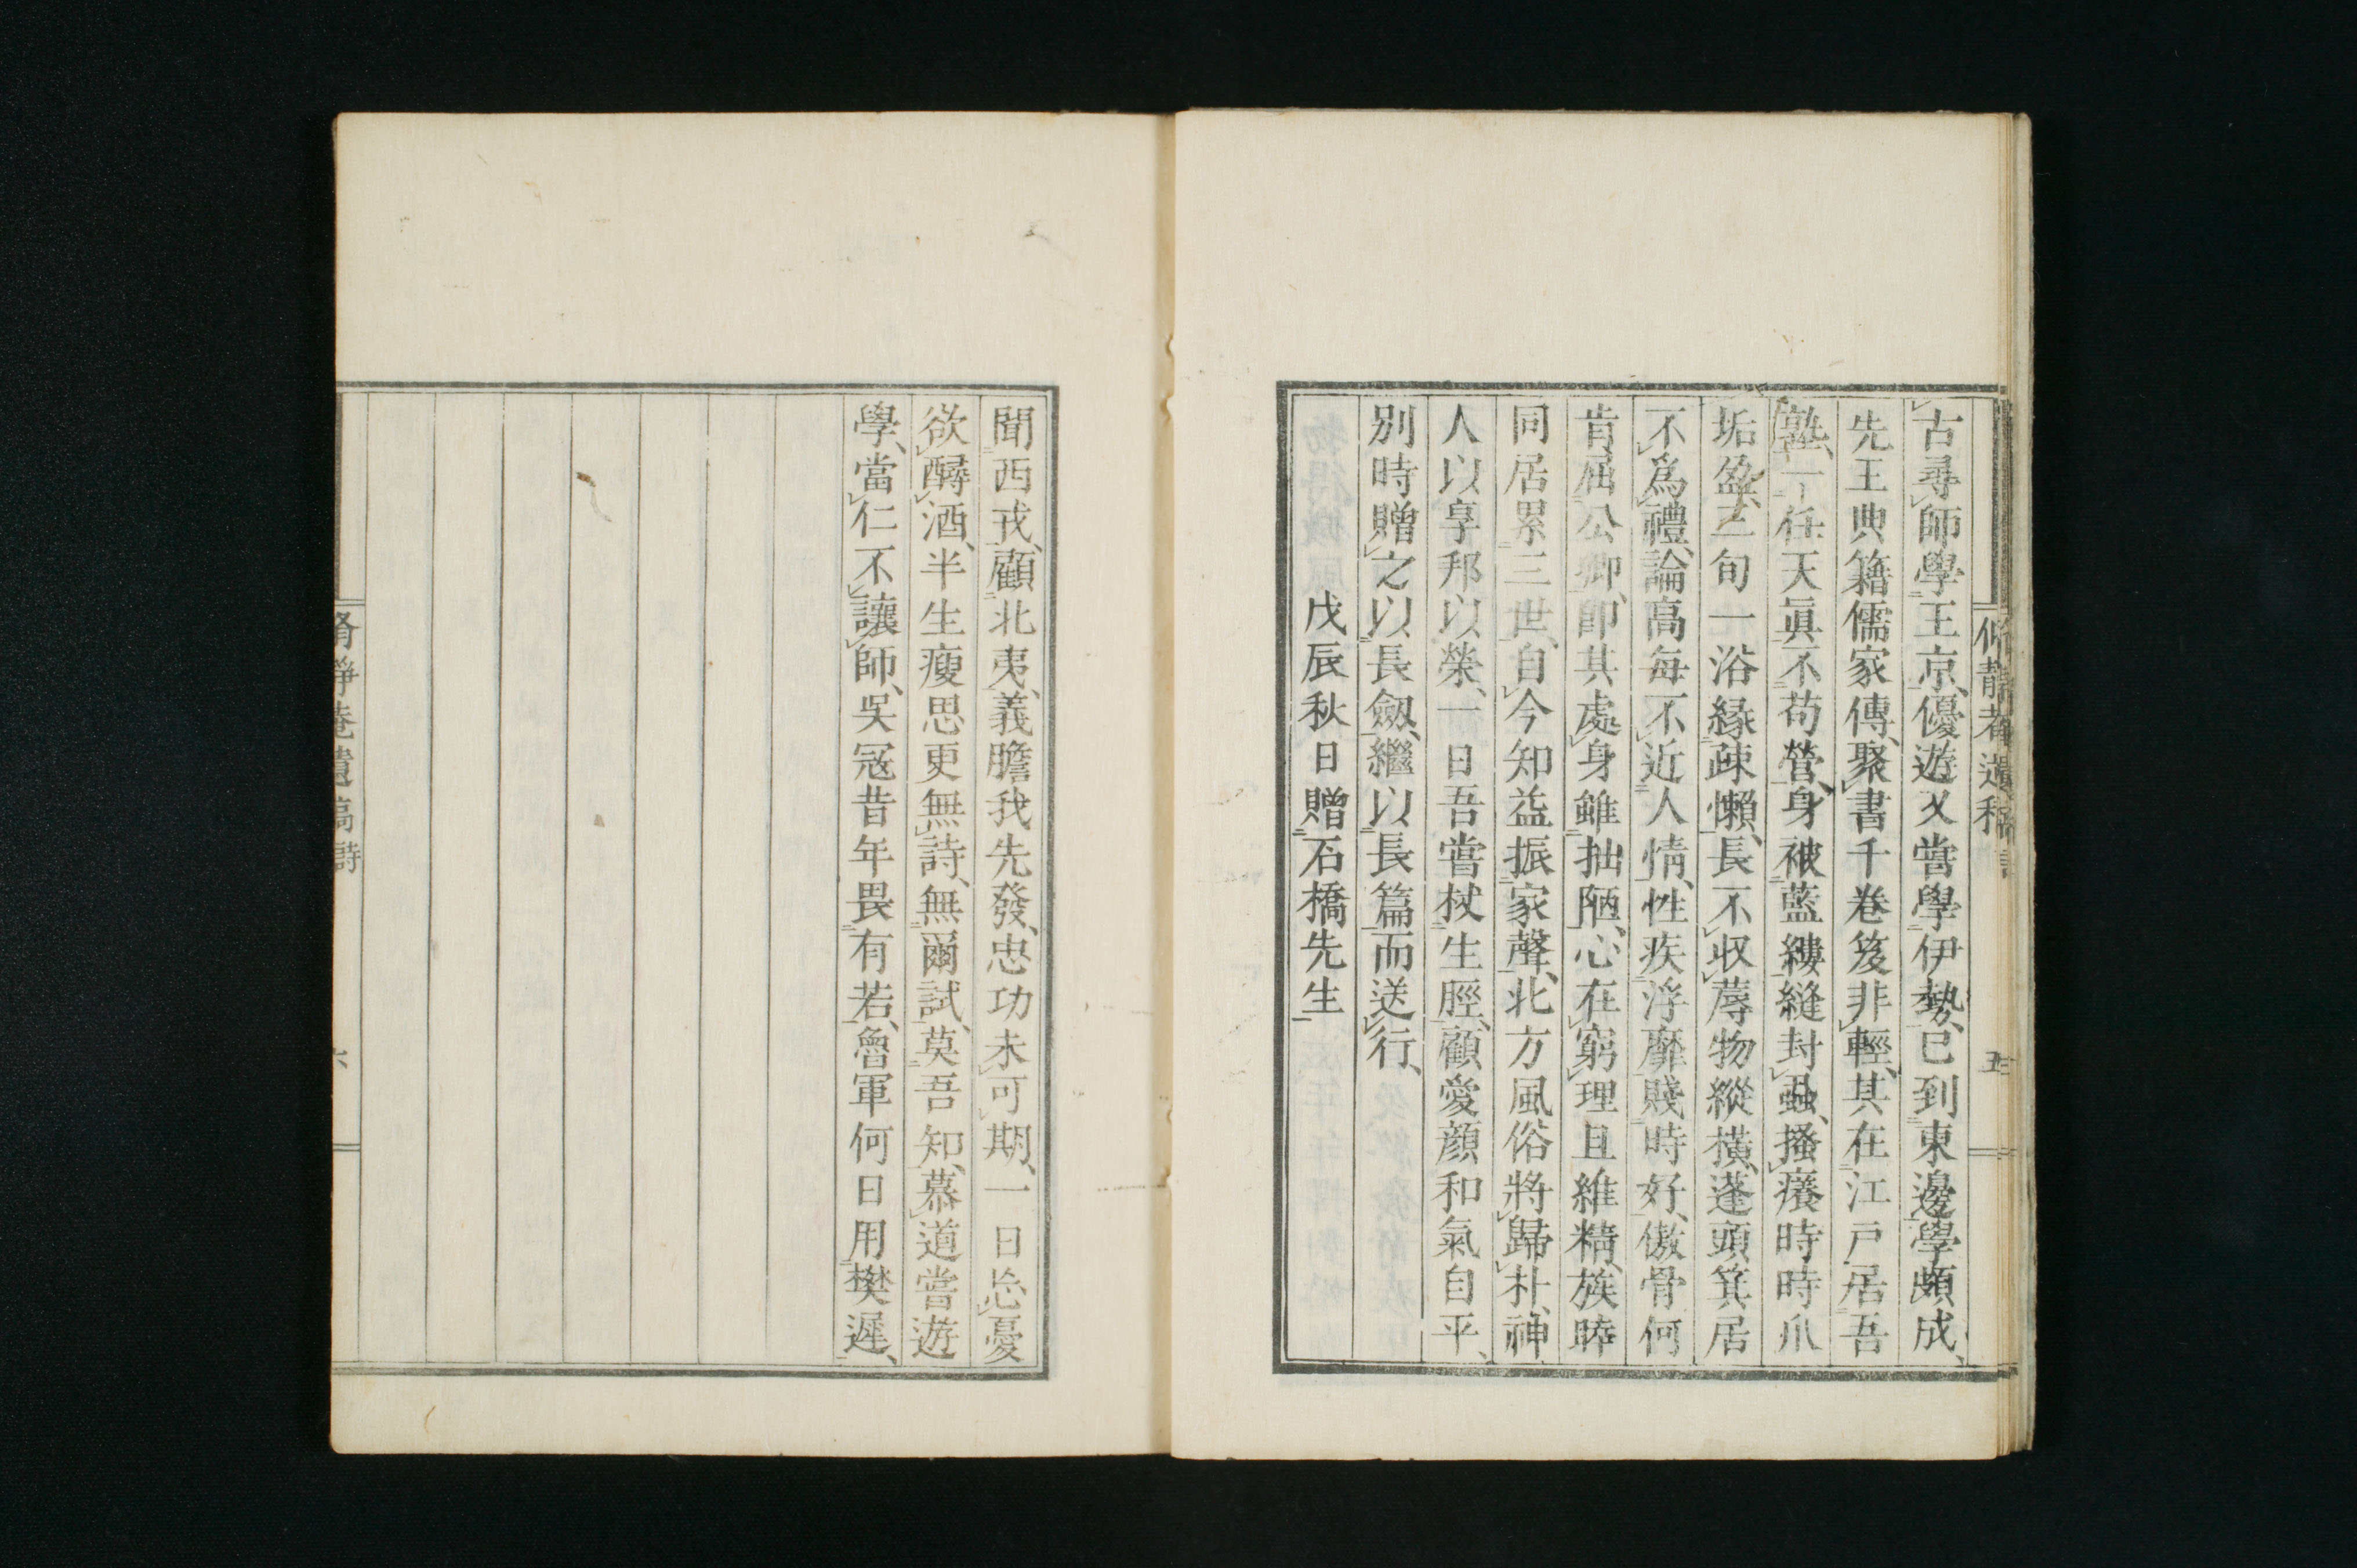 古尋師學王京、優遊又嘗學伊勢、已到東邊學頗成、
先王典籍儒家傳、聚書千卷笈非輕、其在江戸居吾
塾、一任天眞不苟營、身被藍縷縫封蝨、搔癢時時爪
垢盈、三旬一浴緣疎懶、長不收蓐物縱橫、蓬頭箕居
不爲禮、論高每不近人情、性疾浮靡賤時好、傲骨何
肯屈公卿、卽其處身雖拙陋、心在窮理且維精、族睦
同居累三世、自今知益振家聲、北方風俗將歸朴、神
人以享邦以榮、一日吾嘗杖生脛、顧愛顏和氣自平、
別時贈之以長劔、繼以長篇而送行、
戊辰秋日贈石橋先生
聞西戎、顧北夷、義膽我先發、忠功未可期、一日忩憂
欲醪酒、半生瘦思更無詩、無爾試、莫吾知、慕道嘗遊
學、當仁不讓師、吳冦昔年畏有若、魯軍何日用樊遲、
五
六